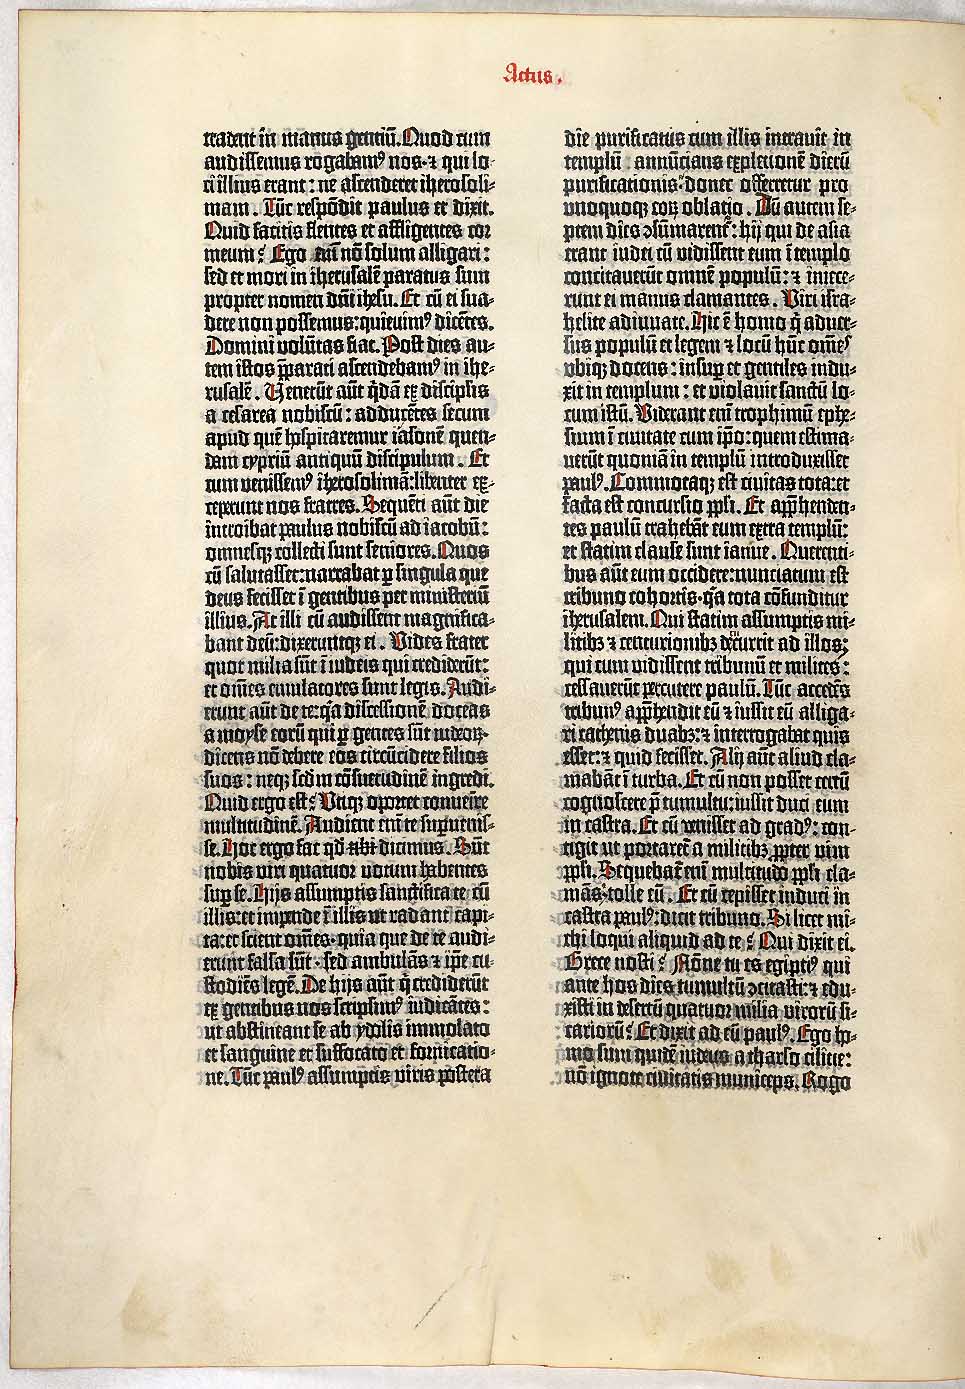 Actus.
tradent in manus gentiū. Quod cum
audissemus rogabam⁹ nos · ⁊ qui lo-
ci illius erant : ne ascenderet iherosoli-
mam . Tūc respōdit paulus et dixit.
Quid facitis flentes et affligentes cor
meum : Ego eni nō solum alligari :
sed et mori in iherusalē paratus sum
propter nomen dn̄i ihesu. Et cū ei sua-
dere non possemus : quieuim⁹ dicētes.
Domini volūtas fiat. Post dies au-
tem istos p̄parati ascendebam⁹ in ihe-
rusalē . Venerūt aūt q̄dā ex discip̄lis
a cesarea nobiscū : adducētes secum
apud quē hospitaremur iasonē quen-
dam cypriū antiquū discipulum . Et
cum venissem⁹ iherosolimā : libenter ex-
ceperunt nos fratres. Sequēti aūt die
introibat paulus nobiscū ad iacobū :
omnesqȝ collecti sunt seniores. Quos
cū salutasset : narrabat ꝑ singula que
deus fecisset ī gentibus per ministeriū
illius. At illi cū audissent magnifica-
bant deū : dixeruntqȝ ei . Vides frater
quot milia sūt ī iudeis qui crediderūt :
et om̄es emulatores sunt legis. Audi-
erunt aūt de te : q̄a discessionē doceas
a moyse eorū qui ꝑ gentes sūt iudeoꝝ ·
dicens nō debere eos circūcidere filios
suos : neqȝ scdm cōsuetudinē ingredi.
Quid ergo est : Vtiqȝ oportet conuenire
multitudinē. Audient eni te suꝑuenis-
se. Hoc ergo fac qd̄ tibi dicimus . Sūt
nobis viri quatuor votum habentes
suꝑ se. Hijs assumptis sanctifica te cū
illis : et impende ī illis ut radant capi-
ta : et scient om̄es · quia que de te audi-
erunt falsa sūt · sed ambulas ⁊ ip̄e cu-
stodiēs legē. De hijs aūt q̄ crediderūt
ex gentibus nos scripsim⁹ iudicātes :
ut abstineant se ab ydolis immolato
et sanguine et suffocato et fornicatio-
ne. Tūc paul⁹ assumptis viris postera
die purificatus cum illis intrauit in
templū : annūcians expletionē dierū
purificationis · donec offerretur pro
vnoquoqȝ eoꝝ oblatio . Dū autem se-
ptem dies ↄsūmarent̄ : hij qui de asia
erant iudei cū vidissent eum ī templo
concitauerūt omnē populū : ⁊ iniece-
runt ei manus clamantes . Viri isra-
helite adiuuate. Hic ē homo q̄ aduer-
sus populū et legem ⁊ locū hūc om̄es
vbiqȝ docens : insuꝑ et gentiles indu-
xit in templum : et violauit sanctū lo-
cum istū. Viderant eni trophimū ephe-
sium ī ciuitate cum ip̄o : quem estima-
uerūt quoniā in templū introduxisset
paul⁹. Commotaqȝ est ciuitas tota : et
facta est concursio pp̄li. Et app̄henden-
tes paulū trahebāt eum extra templū :
et statim clause sunt ianue . Querenti-
bus aūt eum occidere : nunciatum est
tribuno cohortis · q̄a tota cōfunditur
iherusalem. Qui statim assumptis mi-
litibȝ ⁊ centurionibȝ decurrit ad illos :
qui cum vidissent tribunū et milites :
cessauerūt ꝑcutere paulū. Tūc accedēs
tribun⁹ app̄hendit eū ⁊ iussit eū alliga-
ri cathenis duabȝ : ⁊ interrogabat quis
esset : ⁊ quid fecisset. Alij aūt aliud cla-
mabāt ī turba. Et cū non posset certū
cognoscere p̄ tumultu : iussit duci eum
in castra. Et cū venisset ad grad⁹ : con-
tigit ut portaret̄ a militibȝ ꝓpter vim
pp̄li. Sequebat̄ eni multitudo pp̄li cla-
mās : tolle eū . Et cū cepisset induci in
castra paul⁹ : dicit tribuno. Si licet mi-
chi loqui aliquid ad te : Qui dixit ei.
Grece nosti : Nōne tu es egipti⁹ qui
ante hos dies tumultū ↄcitasti : ⁊ edu-
xisti in desertū quatuor milia virorū si-
cariorū : Et dixit ad eū paul⁹. Ego ho-
mo sum quidē iudeus a tharso cilicie :
nō ignote ciuitatis municeps. Rogo